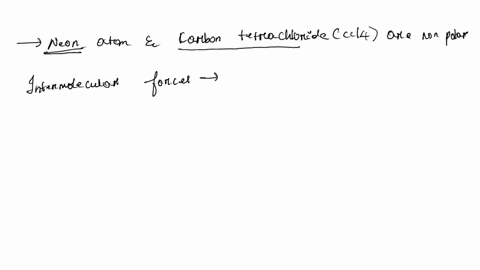 → Neon atom & Carbon tetrachloride (CCl4) are non polar
Intermolecular forces →